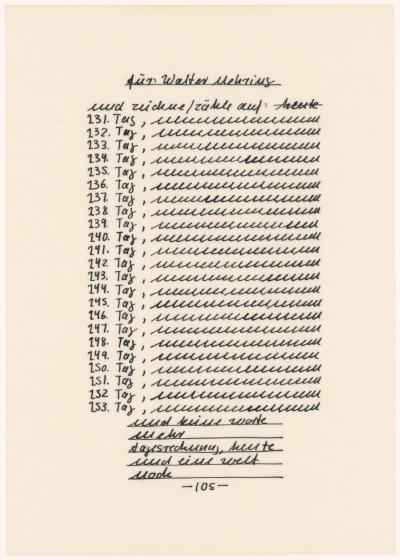 für: Walter Mehring
und zeichne/zähle auf: heute
231. Tag,
232. Tag,
233. Tag,
234. Tag,
235. Tag,
236. Tag,
237. Tag,
238. Tag,
239. Tag,
240. Tag,
241. Tag,
242. Tag,
243. Tag,
244. Tag,
245. Tag,
246. Tag,
247. Tag,
248. Tag,
249. Tag,
250. Tag,
251. Tag,
252 Tag,
253. Tag,
und keine worte
mehr
tagesrechnung, heute
und eine welt
noch
—105—